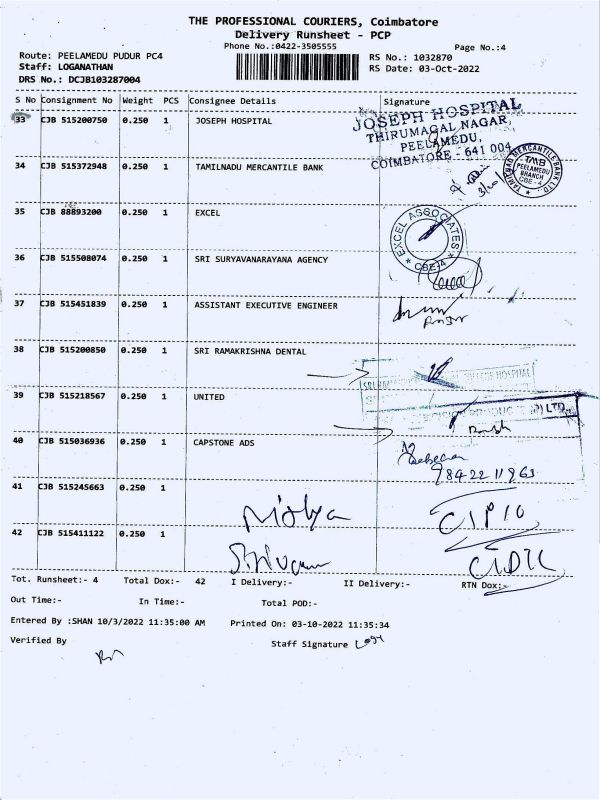 THE PROFESSIONAL COURIERS, Coimbatore
Delivery Runsheet - PCP
Phone No.:0422-3505555
Page No.:4
Route: PEELAMEDU PUDUR PC4
RS No.: 1032870
Staff: LOGANATHAN
RS Date: 03-Oct-2022
DRS No.: DCJB103287004
S No Consignment No Weight PCS Consignee Details Signature
33 CJB 515200750 0.250 1 JOSEPH HOSPITAL
JOSEPH HOSPITAL
THIRUMAGAL NAGAR,
PEELAMEDU,
COIMBATORE - 641 004
34 CJB 515372948 0.250 1 TAMILNADU MERCANTILE BANK
TAMILNAD MERCANTILE BANK LTD.
TMB
PEELAMEDU
BRANCH
CBE-4
35 CJB 88893200 0.250 1 EXCEL
EXCEL ASSOCIATES
CBE-4
36 CJB 515508074 0.250 1 SRI SURYAVANARAYANA AGENCY
37 CJB 515451839 0.250 1 ASSISTANT EXECUTIVE ENGINEER
38 CJB 515200850 0.250 1 SRI RAMAKRISHNA DENTAL
COLLEGE HOSPITAL
39 CJB 515218567 0.250 1 UNITED
(P) LTD
40 CJB 515036936 0.250 1 CAPSTONE ADS
98422 11963
41 CJB 515245663 0.250 1
Nithya
42 CJB 515411122 0.250 1
Tot. Runsheet:- 4 Total Dox:- 42 I Delivery:- II Delivery:- RTN Dox:-
Out Time:- In Time:- Total POD:-
Entered By :SHAN 10/3/2022 11:35:00 AM Printed On: 03-10-2022 11:35:34
Verified By Staff Signature